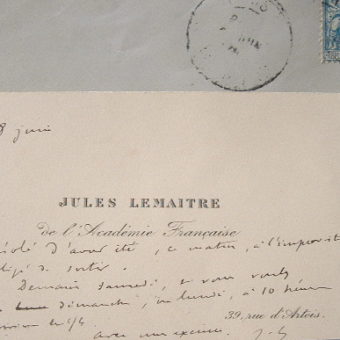 8 juin
JULES LEMAITRE
de l'Académie Française
d'avoir été, ce matin, à l'improvist
de sortir.
Demain Samedi, si vous voulez
dimanche, ou lundi, à 10 heures
39, rue d'Artois.
avec mes excuses. J. L.